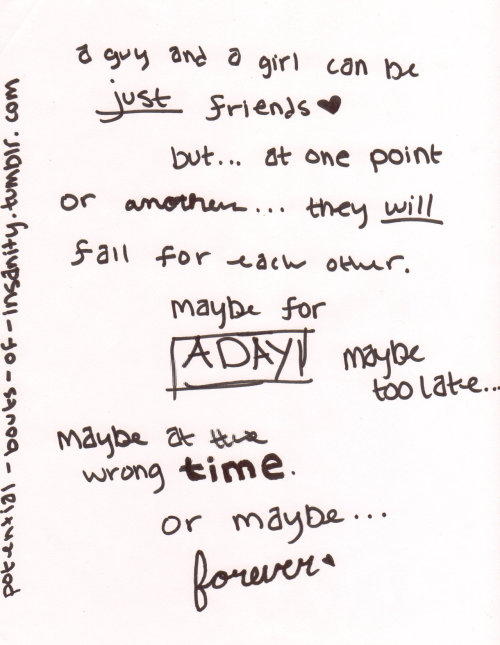 a guy and a girl can be
just friends ♥
but... at one point
or another... they will
fall for each other.
maybe for
A DAY
maybe
too late...
maybe at the
wrong time.
or maybe...
forever ♥
potential-bouts-of-insanity.tumblr.com